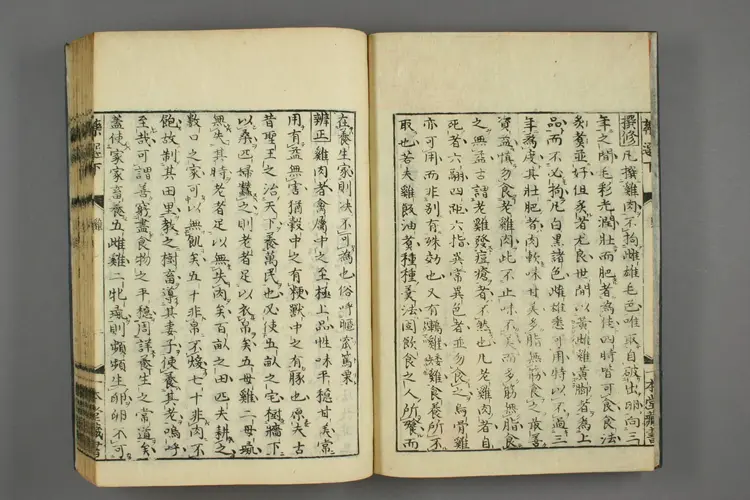 撰修凡撰雞肉不拘雌雄毛色唯取自破出卵向三
年之間毛彩光潤壯而肥者為佳四時皆可食食法
炙煑並好但炙者尤良世間以黃雌雞黃脚者為上
品而不必拘凡白黑諸色雌雄悉可用特以不過三
年為度其壯肥者肉軟味甘美多脂無筋食之最
資益慎勿食老雞肉此不止味不美而多筋無脂食
之無益古謂老雞發痘瘡者不然也凡老雞肉者自
死者六翮四距六指異常異色者並勿食之烏骨雞
亦可用而非別有殊効也又有雞食養所不
取也若夫雞飯油煑種種烹法因飲食之人所饗而
在養生家則決不可為也俗呼
辨正雞肉者禽屬中之至極上品性味平穩甘美常
用有益無害猶穀中之有稉獸中之有豚也原夫古
昔聖王之治天下養萬民也必使五畝之宅樹牆下
以桑匹婦蠶之則老者足以衣帛矣五母雞二母彘
無失其時老者足以無失肉矣百畝之田匹夫耕之
數口之家可以無飢矣五十非帛不煖七十非肉不
飽故制其田里教之樹畜導其妻子使養其老嗚呼
至哉可謂善窮盡食物之平穩周詳養生之常道矣
蓋使家家畜養五雌雞二牝彘則頻頻生卵卵不可
一本堂藏書